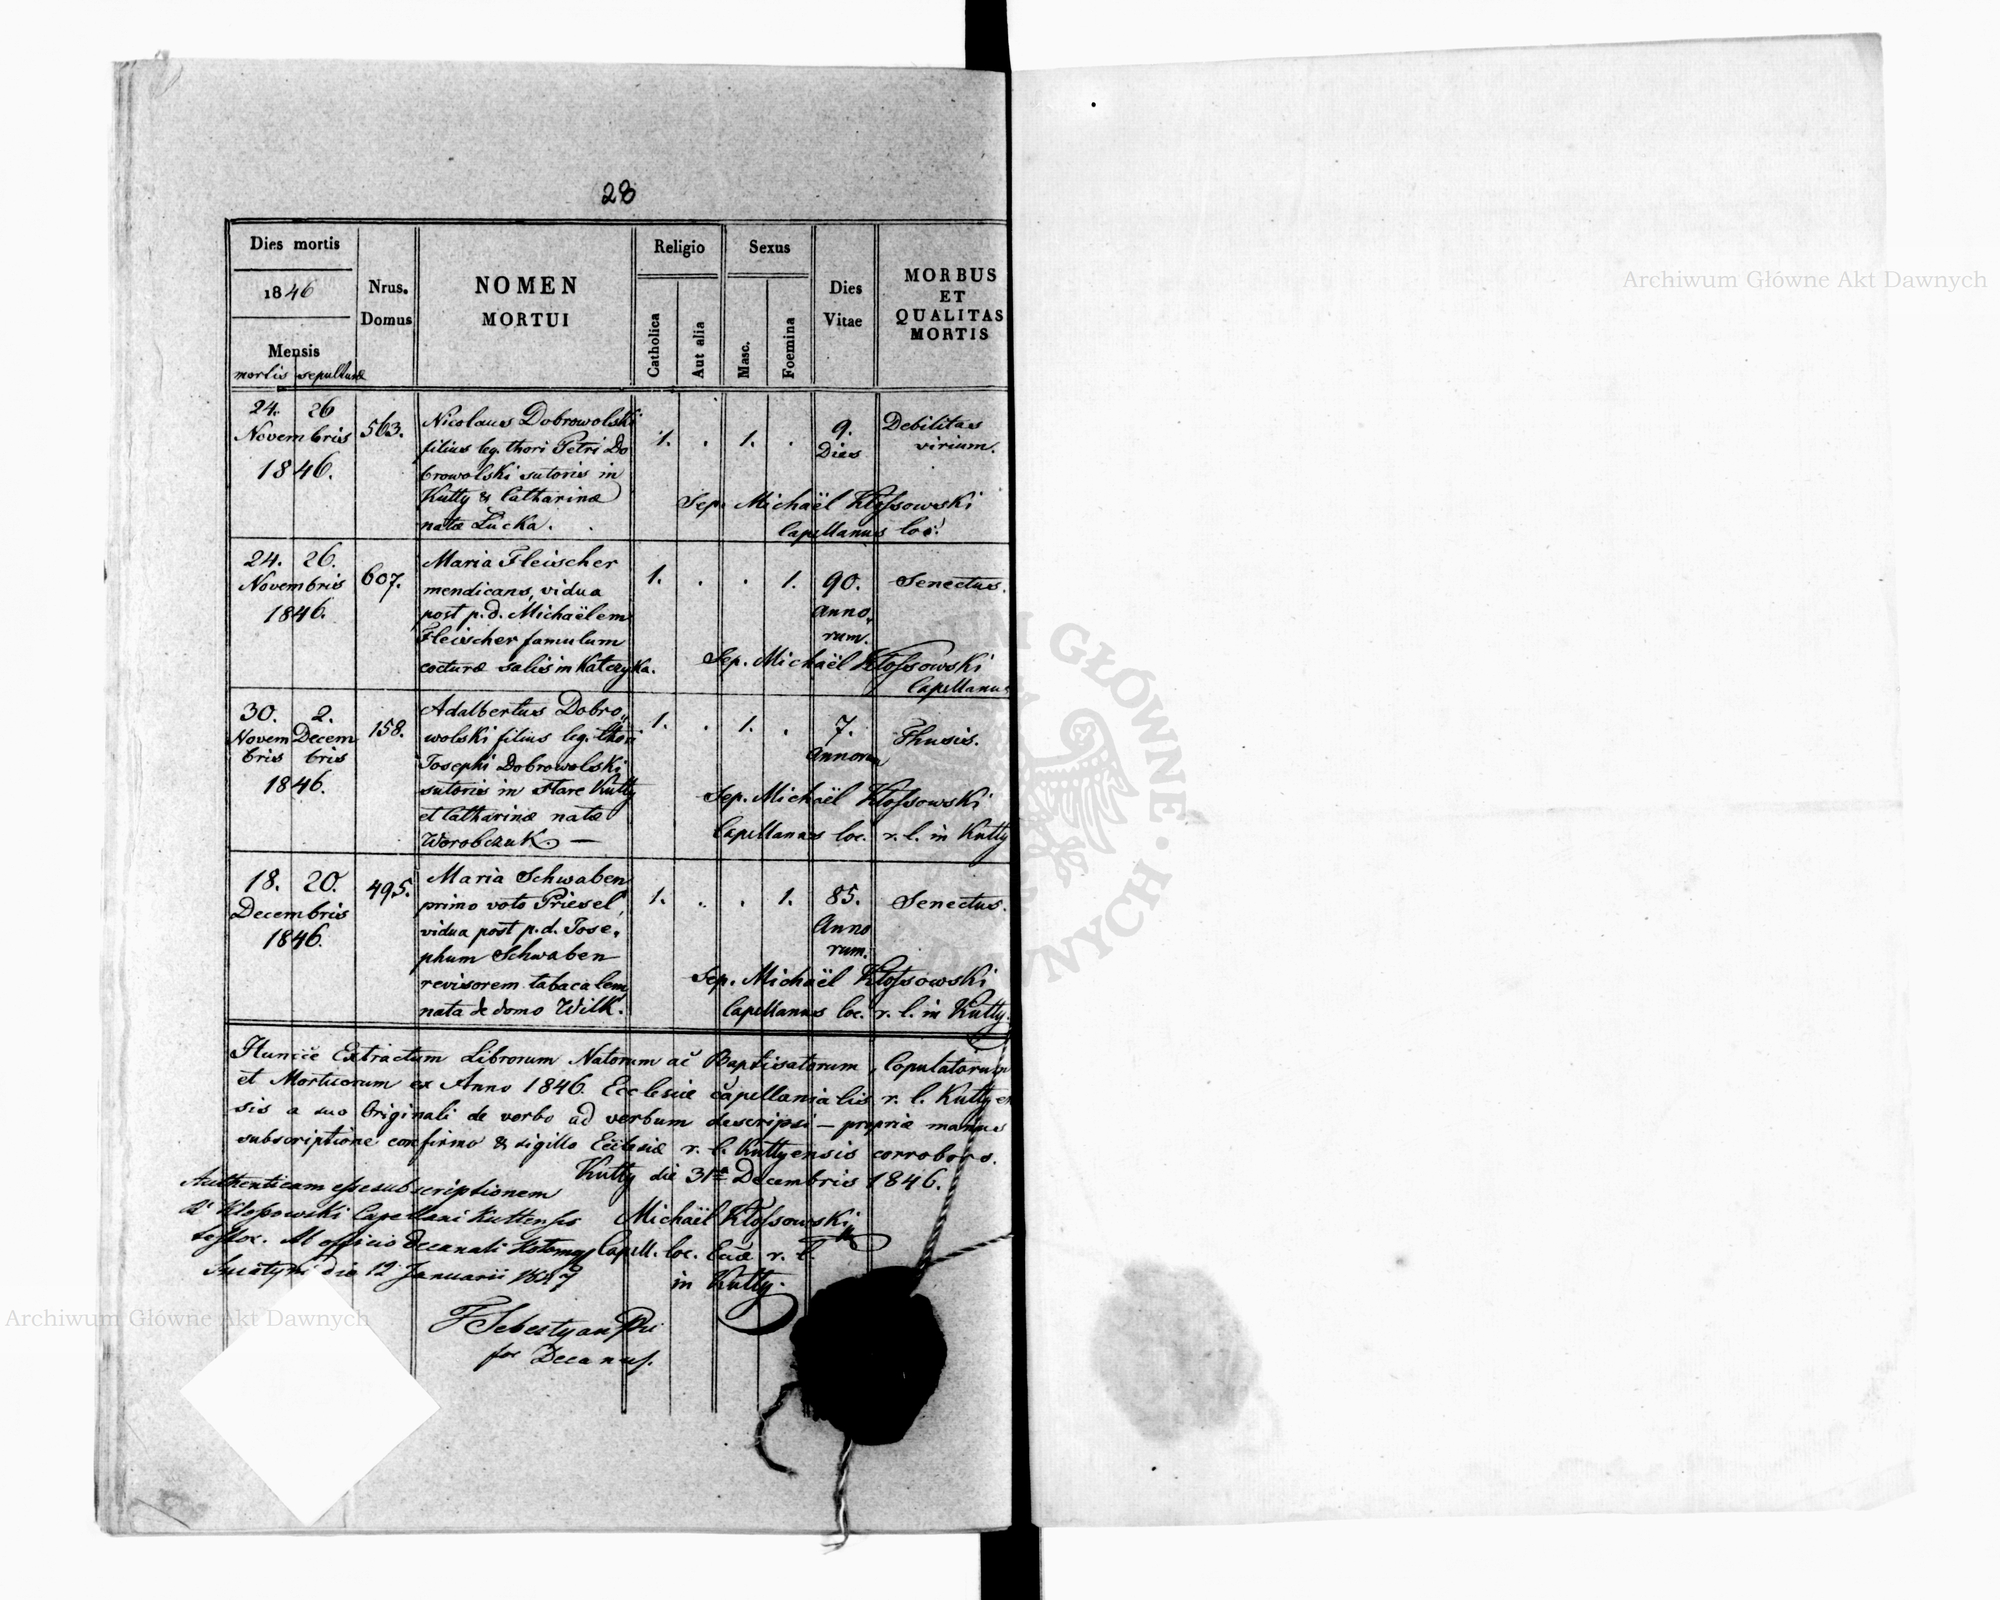 28
Dies mortis
1846
Mensis
mortis sepulturæ
Nrus.
Domus
NOMEN
MORTUI
Religio
Catholica
Aut alia
Sexus
Masc.
Foemina
Dies
Vitae
MORBUS
ET
QUALITAS
MORTIS
24. 26
Novembris
1846.
563.
Nicolaus Dobrowolski
filius leg. thori Petri Do
browolski sutoris in
Kutty & Catharinæ
natæ Łucka.
1. . 1. .
9.
Dies
Debilitas
virium.
Sep. Michaël Kłossowski
Capellanus loc.
24. 26.
Novembris
1846.
607.
Maria Fleischer
mendicans, vidua
post p. d. Michaëlem
Fleischer famulum
cocturæ salis in Katczyka.
1. . . 1.
90.
Anno,
rum.
Senectus.
Sep. Michaël Kłossowski
Capellanus
30. 2.
Novem Decem
bris bris
1846.
158.
Adalbertus Dobro„
wolski filius leg. thori
Josephi Dobrowolski
sutoris in Stare Kutty
et Catharinæ natæ
Worobczuk. —
1. . 1. .
7.
Annorum
Thusis.
Sep. Michaël Kłossowski
Capellanus loc. r. l. in Kutty
18. 20.
Decembris
1846.
495.
Maria Schwaben
primo voto Priesel,
vidua post p. d. Jose,
phum Schwaben
revisorem tabacalem
nata de domo Wilk.
1. . . 1.
85.
Anno
rum.
Senectus.
Sep. Michaël Kłossowski
Capellanus loc. r. l. in Kutty.
Huncce Extractum Librorum Natorum ac Baptisatorum, Copulatorum
et Mortuorum ex Anno 1846. Ecclesiæ Capellanialis r. l. Kuttyen
sis a suo Originali de verbo ad verbum descripsi — propriæ manus
subscriptione confirmo & sigillo Ecclesiæ r. l. Kuttyensis corroboro.
Kutty die 31ª Decembris 1846.
Authenticam esse subscriptionem
Kłossowski Capellani Kuttensis
Ab officio Decanali
die 12 Januarii 1847
Michaël Kłossowski
Capell. loc. Eccæ r. l.
in Kutty.
Sebestyan
Decanus.
Archiwum Główne Akt Dawnych
Archiwum Główne Akt Dawnych
GŁÓWNE · DAWNYCH